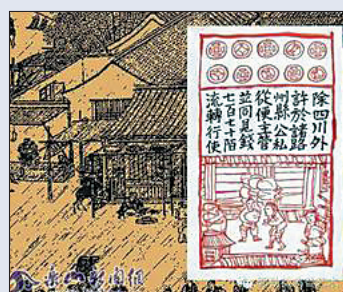 除四川外
許於諸路
州縣公私
從便主管
並同見錢
七百七十陌
流轉行使
乐山新闻网